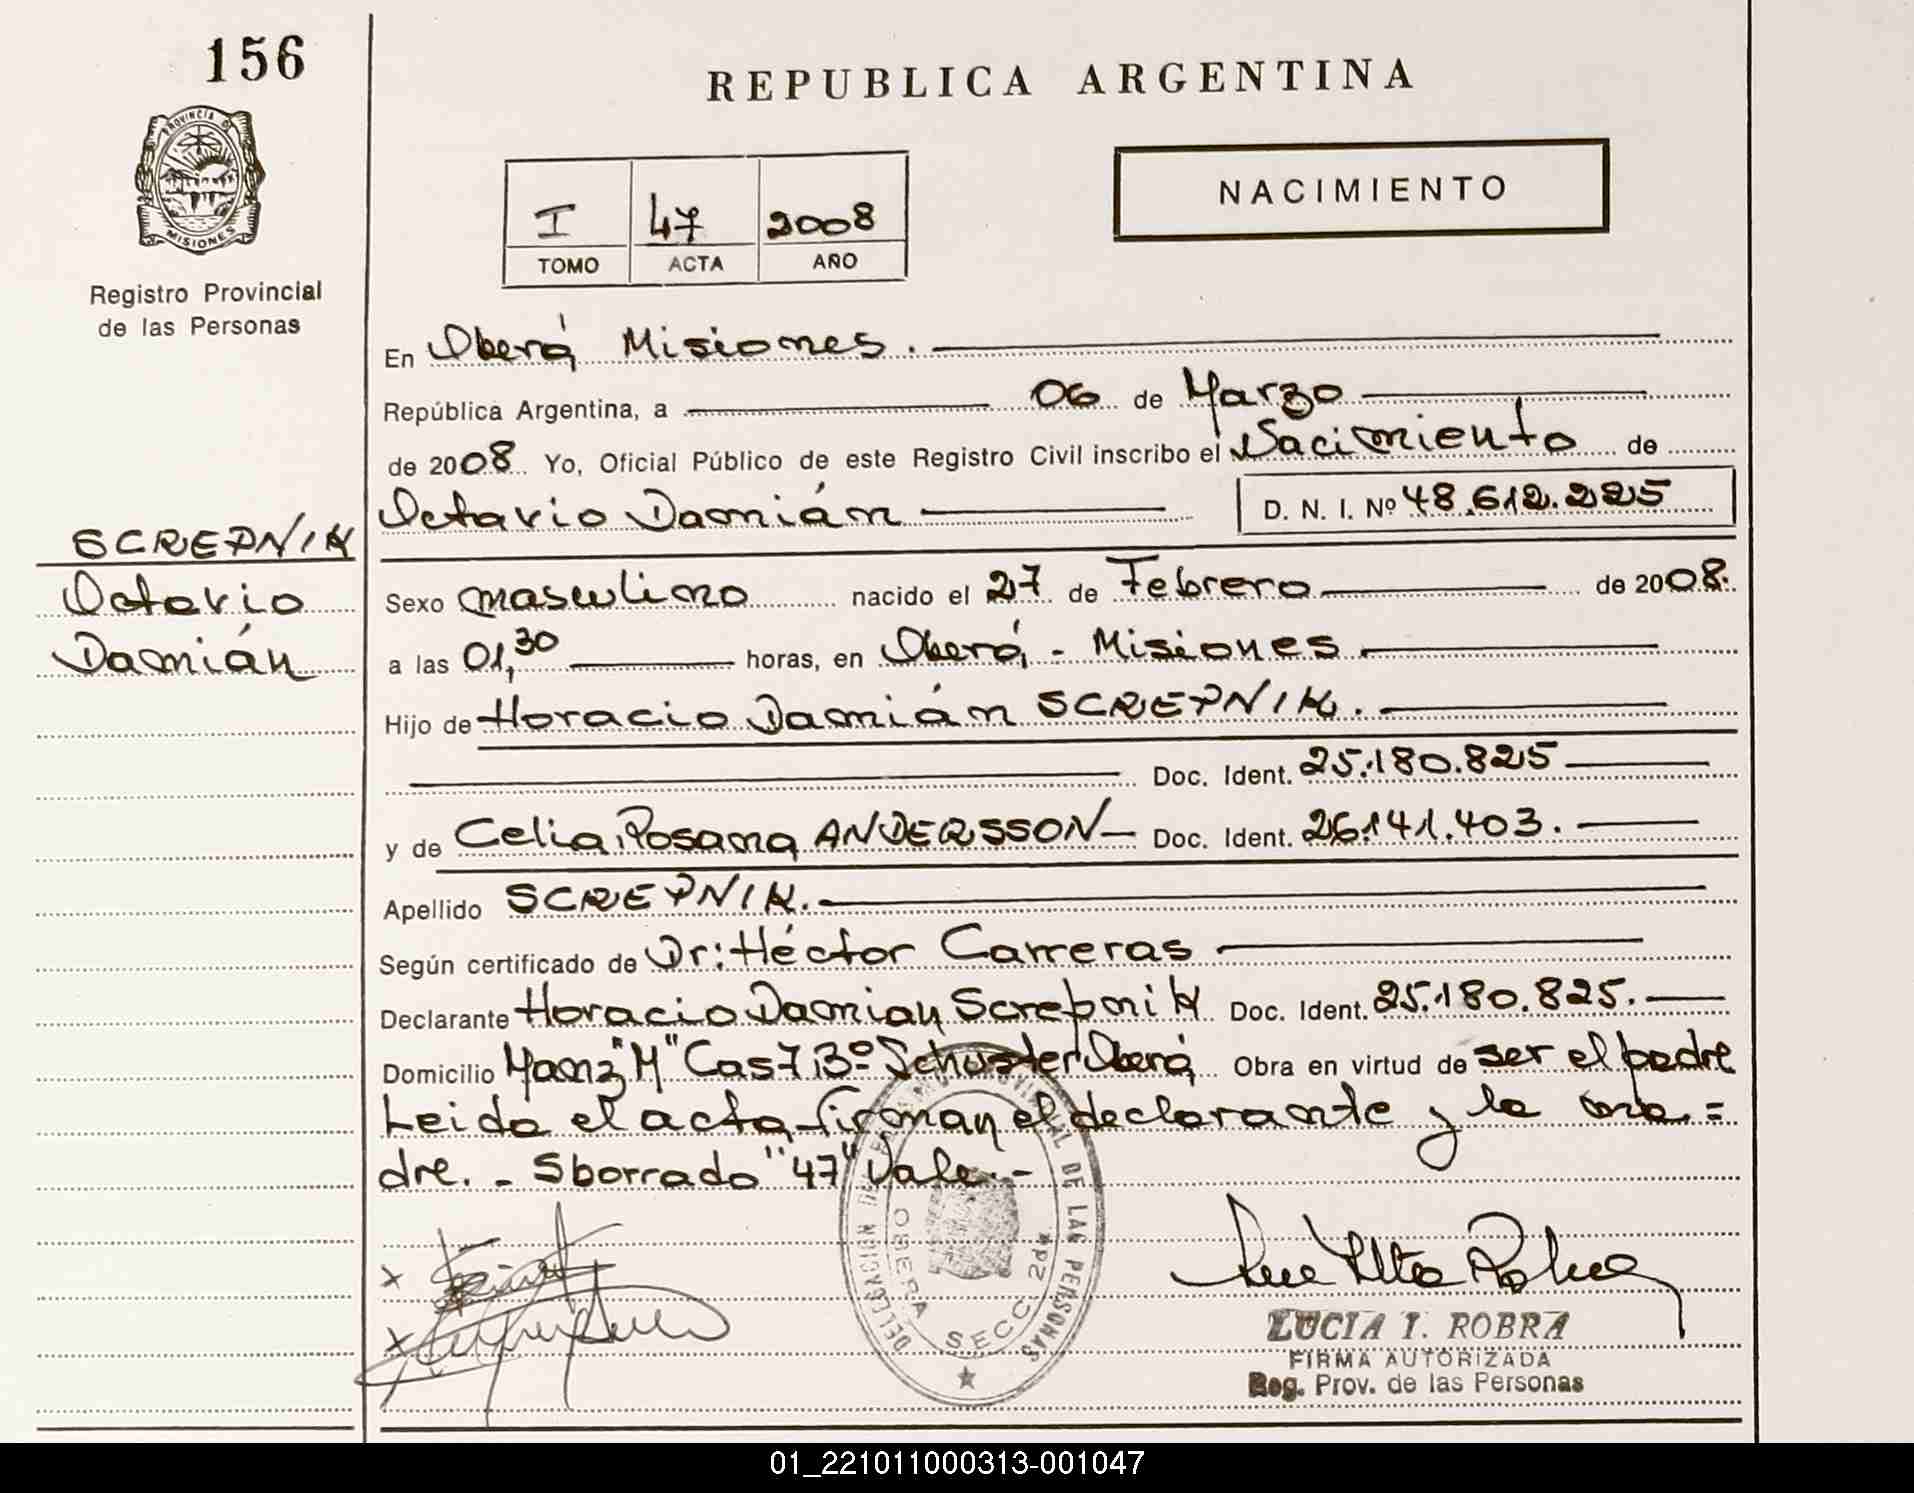 156
REPUBLICA ARGENTINA
PROVINCIA D
MISIONES
Registro Provincial
de las Personas
I 47 2008
TOMO ACTA AÑO
NACIMIENTO
En Oberá Misiones.
República Argentina, a 06 de Marzo
de 2008 Yo, Oficial Público de este Registro Civil inscribo el Nacimiento de
Octavio Damián D. N. I. Nº 48.612.225
SCREPNIK
Octavio
Damián
Sexo masculino nacido el 27 de Febrero de 2008.
a las 01,30 horas, en Oberá - Misiones
Hijo de Horacio Damián SCREPNIK.
Doc. Ident. 25.180.825
y de Celia Rosana ANDERSSON Doc. Ident. 26.141.403.
Apellido SCREPNIK.
Según certificado de Dr: Héctor Carreras
Declarante Horacio Damian Screpnik Doc. Ident. 25.180.825.
Domicilio Manz "M" Cas 7 Bº Schuster Oberá Obra en virtud de ser el padre
Leida el acta firman el declarante y la ma=
dre. - Sborrado "47" Vale.-
x
x
DELEGACION DEL REGISTRO PROVINCIAL DE LAS PERSONAS
OBERA SECC. 2da
LUCIA I. ROBRA
FIRMA AUTORIZADA
Reg. Prov. de las Personas
01_221011000313-001047